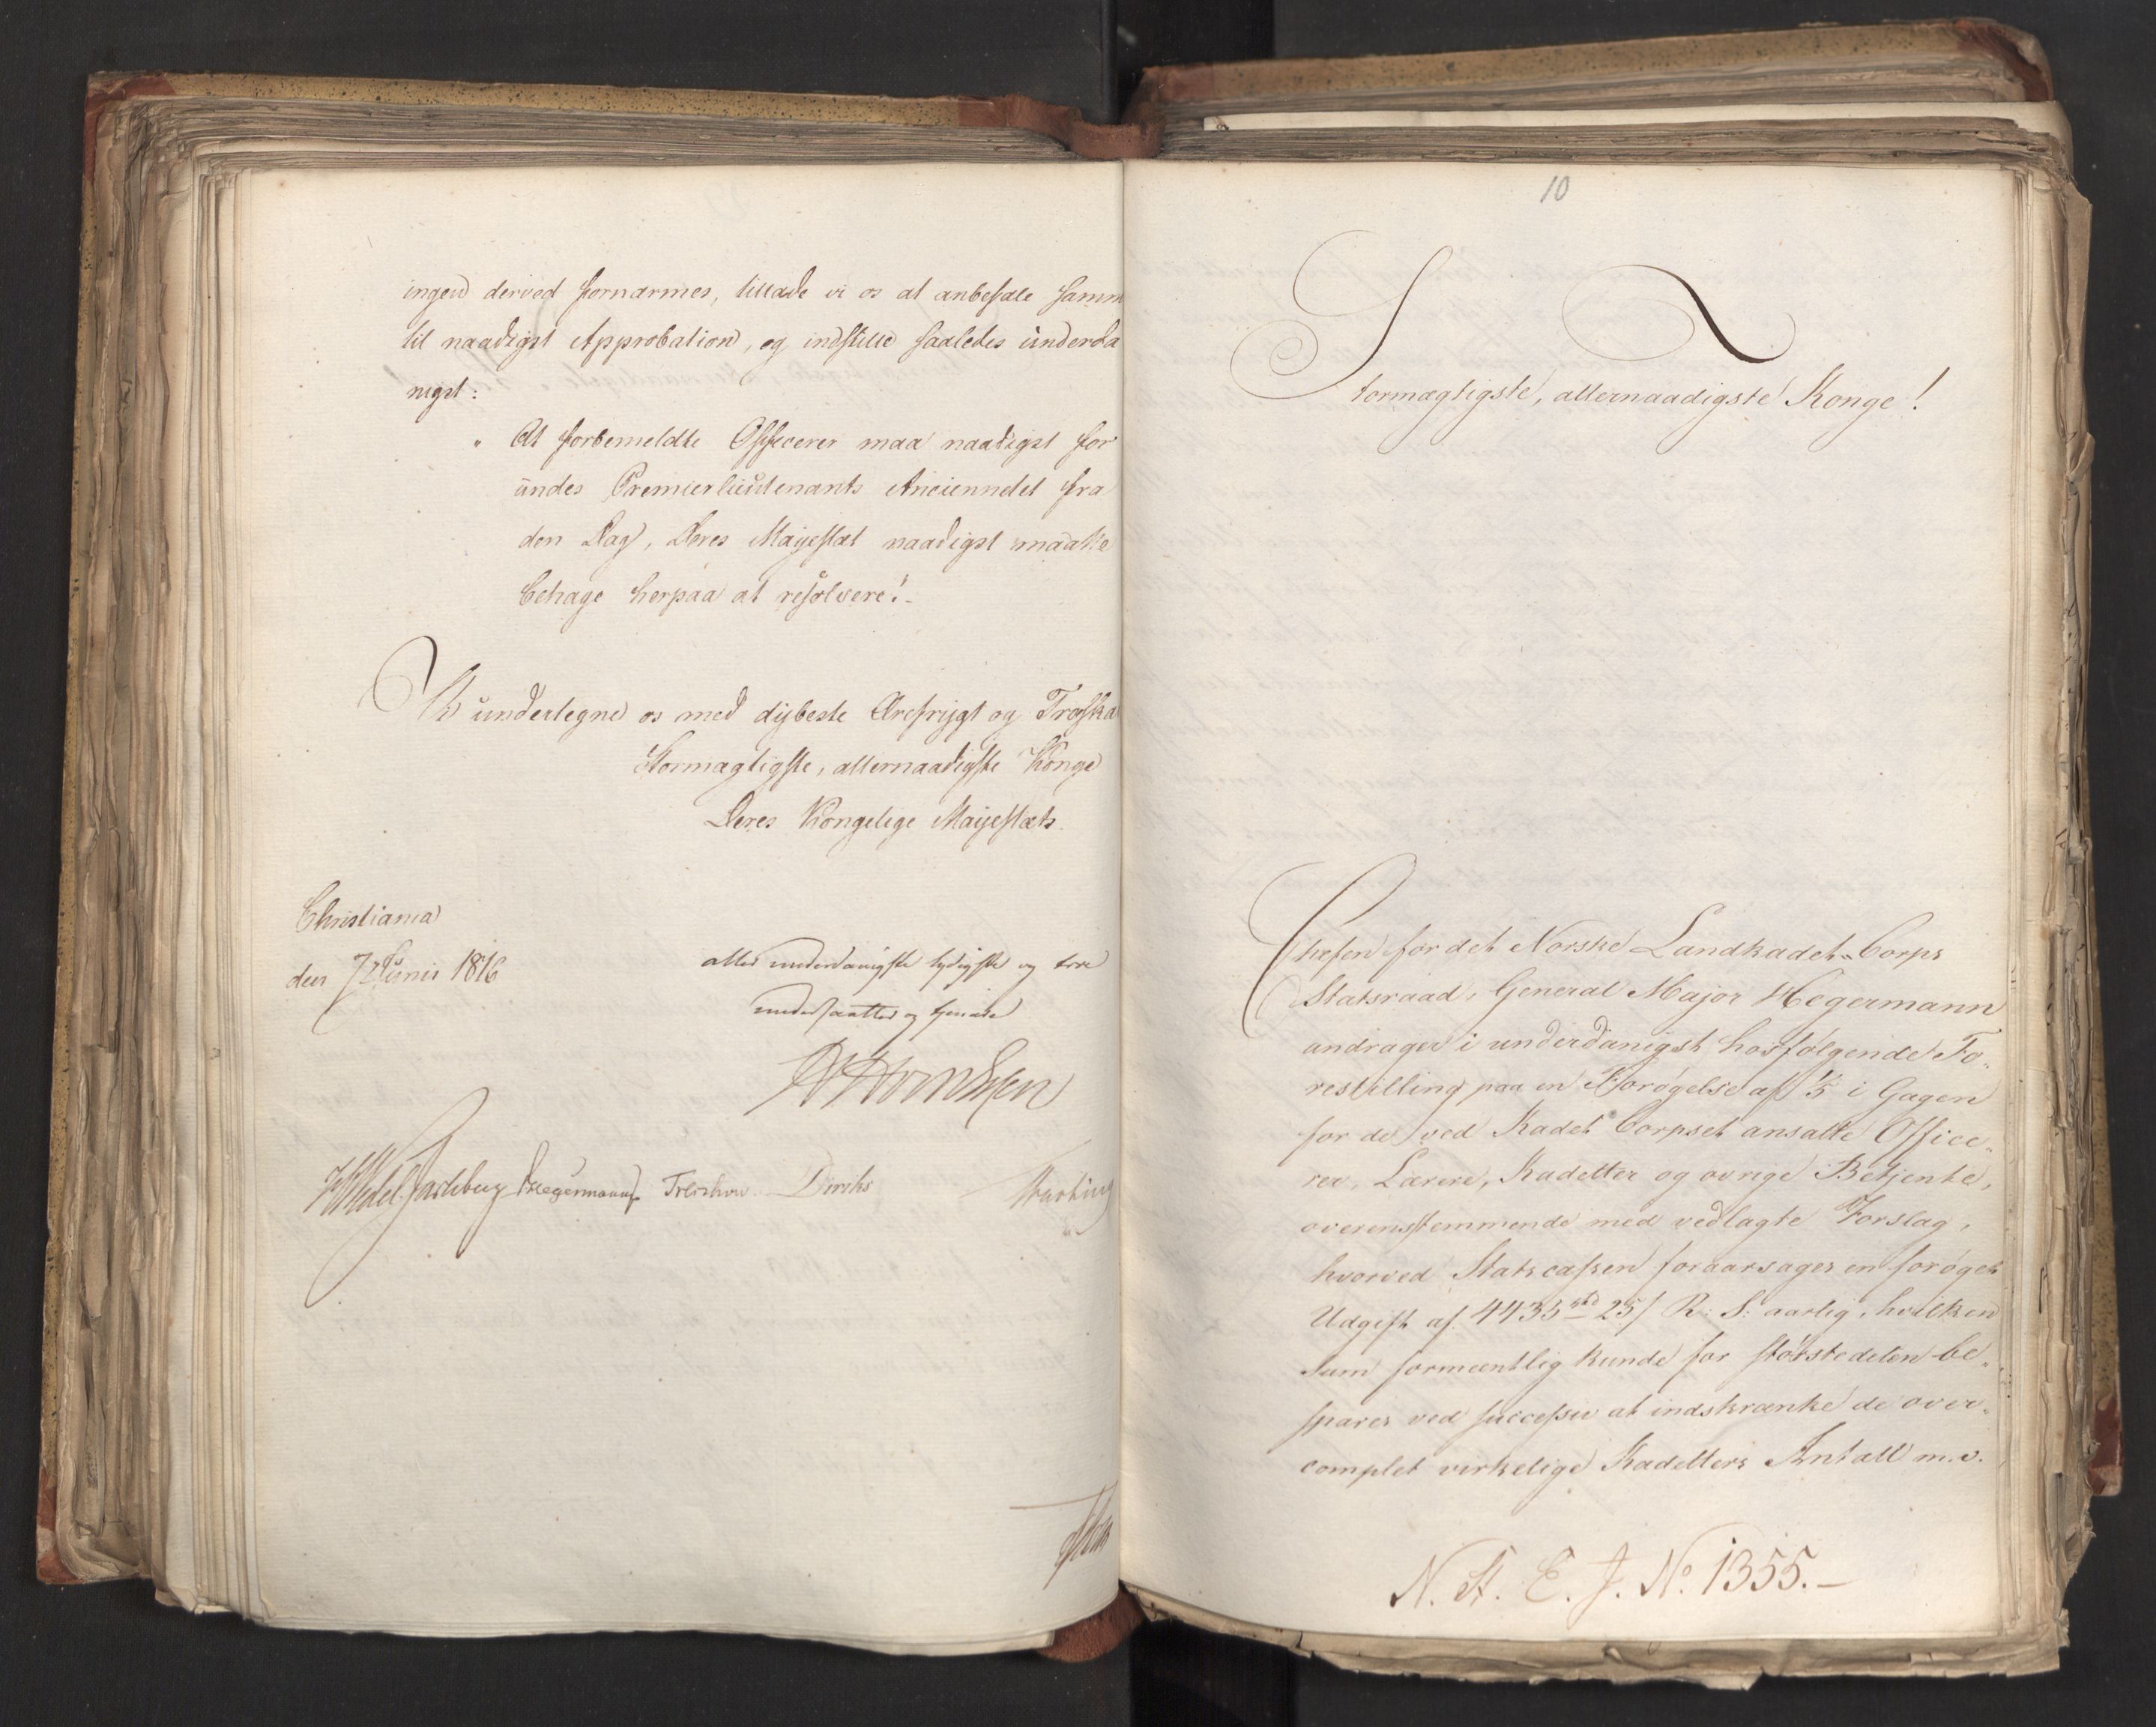 ingen derved fornærmes, tillade vi os at anbefale samm
til naadigst Approbation, og indstille saaledes underda
nigst:
" At forbemeldte Officerer maa naadigst for
undes Premierlieutenants Anciennitet fra
den Dag, Deres Majestæt naadigst maatte
behage herpaa at resolvere!-
Vi undertegne os med dybeste Ærefrygt og Troska
Stormægtigste, allernaadigste Konge
Deres Kongelige Majestæts
Christiania
den 7 Junii 1816
aller underdanigste lydigste og troe
undersaatter og tienere
Wedel Jarlsberg Hegermann Treschow Diriks
10
Stormægtigste, allernaadigste Konge!
Chefen for det Norske Landkadet-Corps
Statsraad, General Major Hegermann
andrager i underdanigst hosfølgende Fo-
restilling paa en Forøgelse af 1/5 i Gagen
for de ved Kadet Corpset ansatte Office-
rer, Lærere, Kadetter og øvrige Betjente,
overensstemmende med vedlagte Forslag,
hvorved Statscassen foraarsages en forøget
Udgift af 4435 rbd 25 s R: S: aarlig, hvilken
Sum formeentlig kunde for størstedelen be-
spares ved successiv at indskrænke de over-
complet virkelige Kadetters Antall m.v.
N. St. E. J. No. 1355.-